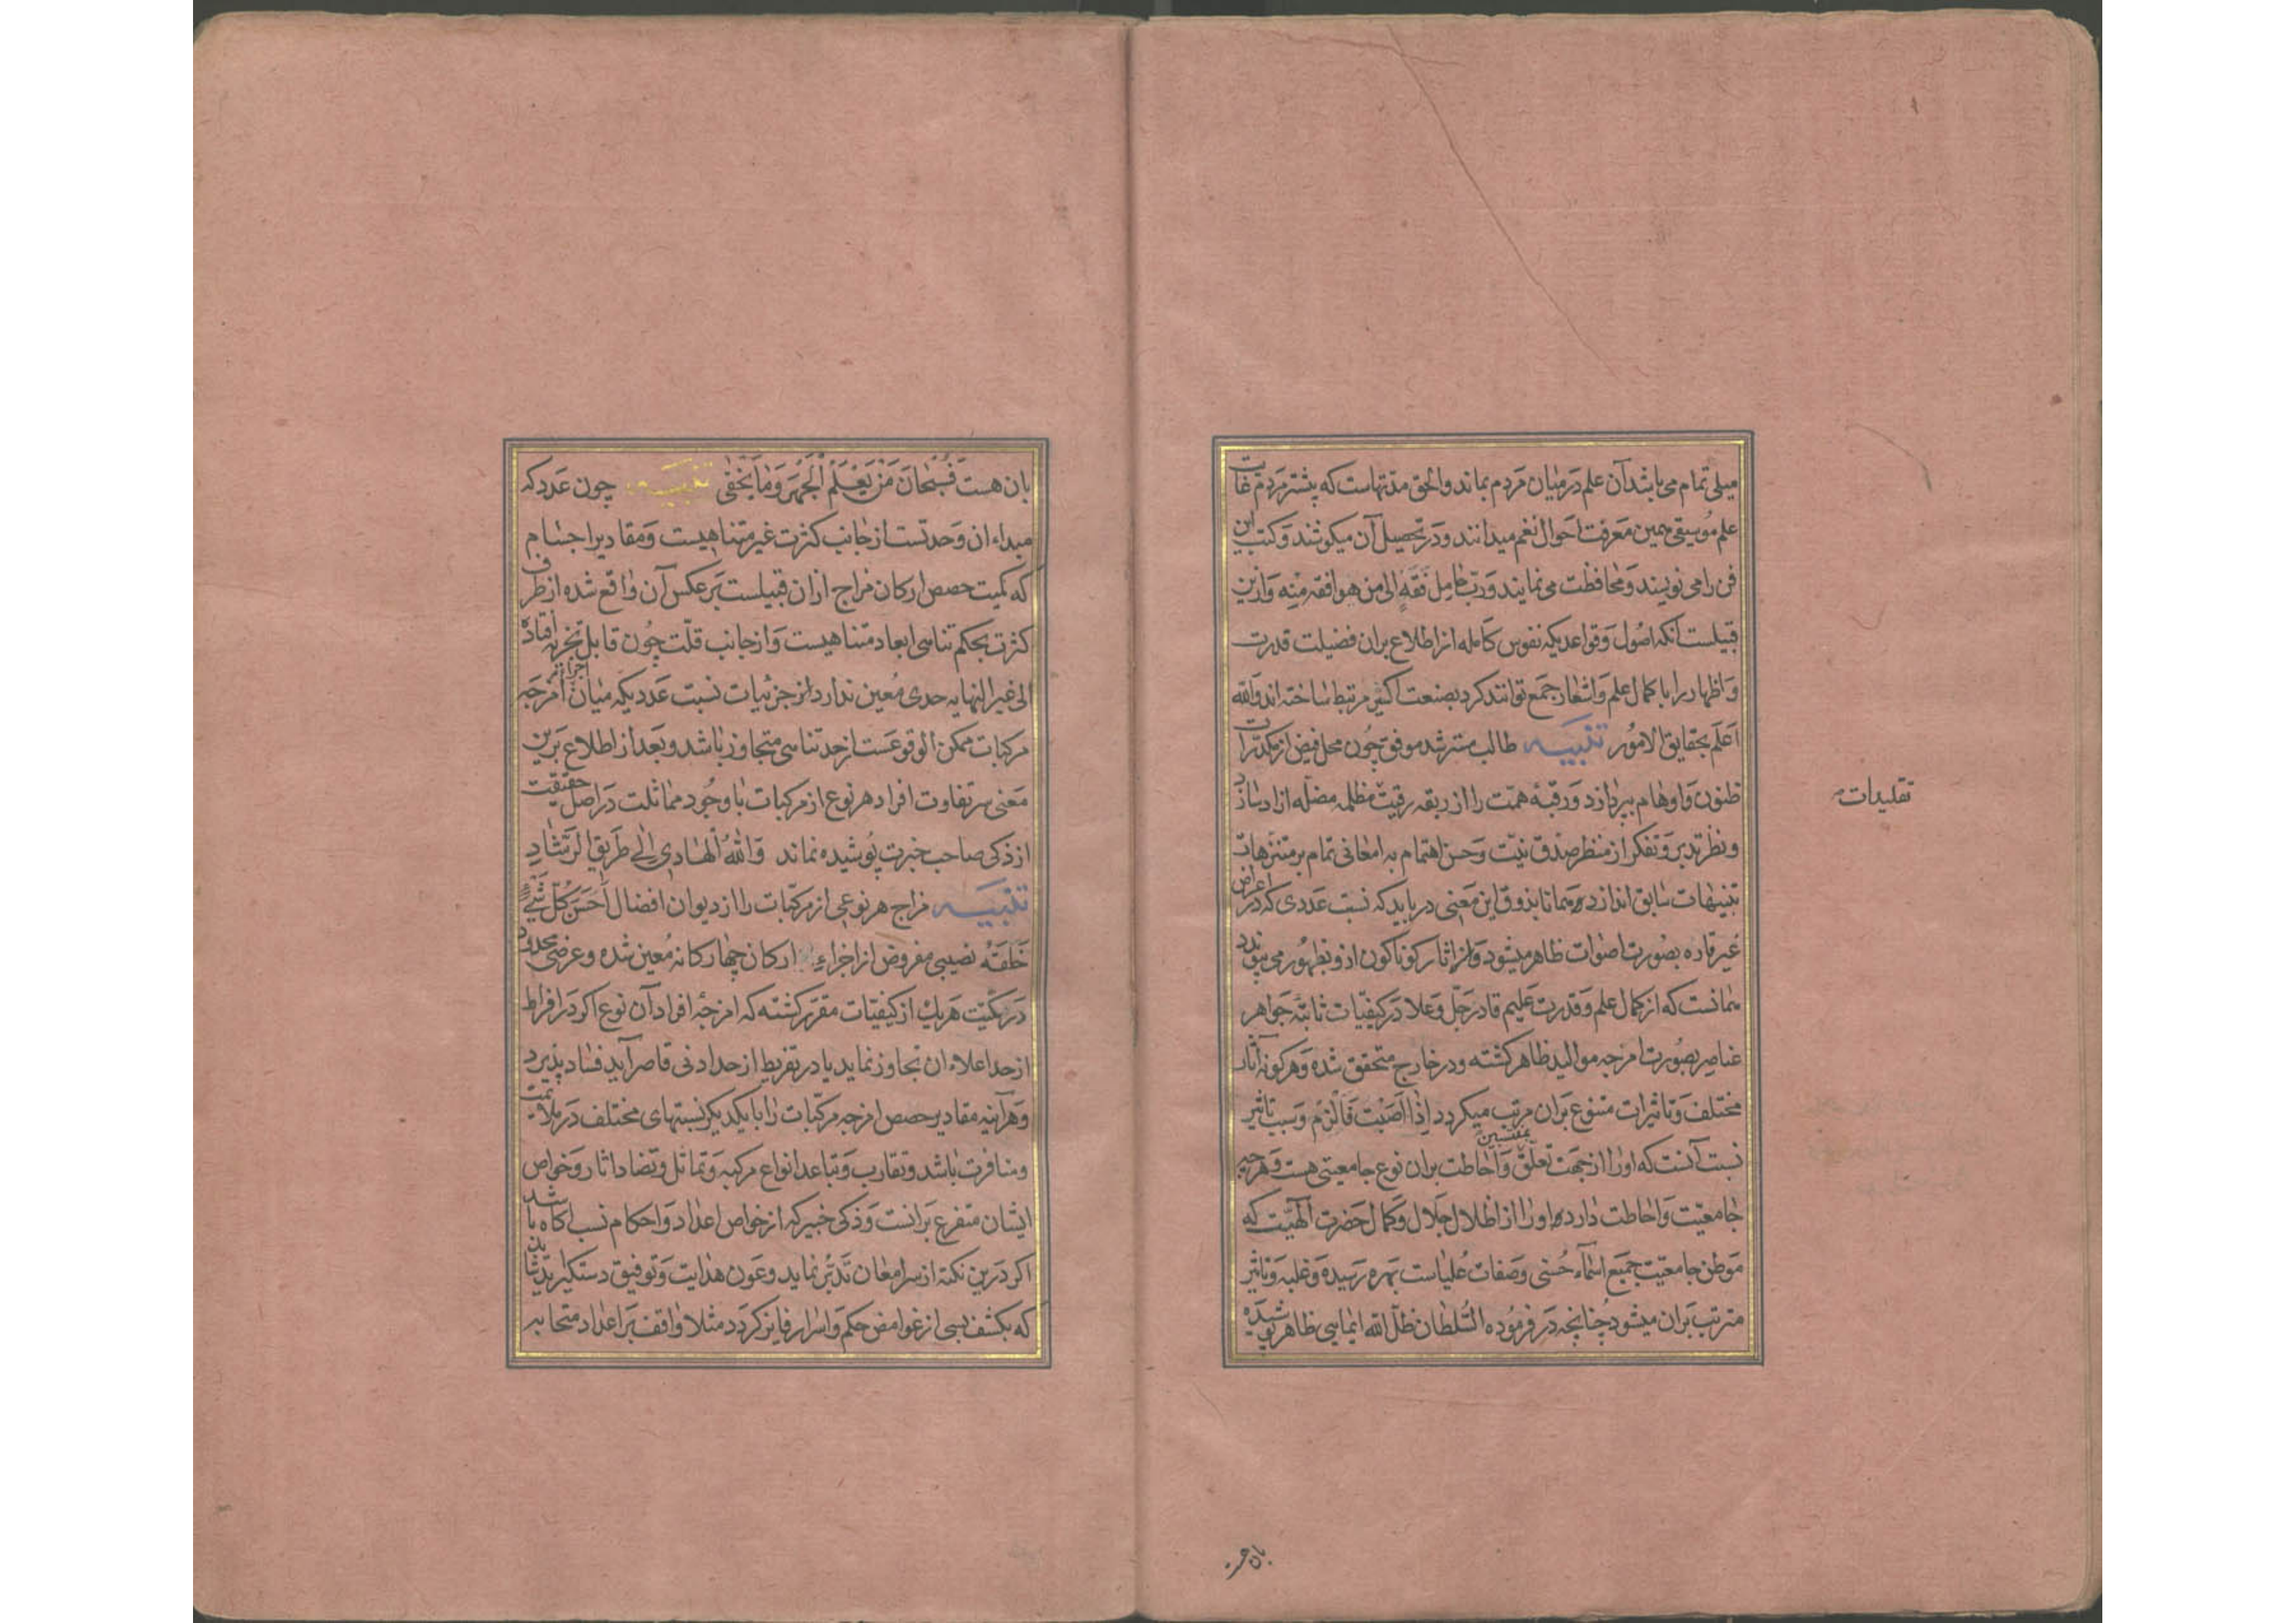 میلی تمام می باشد آن علم در میان مردم بماند والحق مدتهاست که بیشتر مردم غایت
علم موسیقی همین معرفت احوال نغم میدانند و در تحصیل آن میکوشند و کتب این
فن را می نویسند و محافظت می نمایند و رب حامل فقه الی من هو افقه منه و ازین
قبیلست آنکه اصول و قواعدیکه نفوس کامله از اطلاع بران فضیلت قدرت
و اظهار را با کمال علم و اشعار جمع توانند کرد بصنعت اکثیر مرتبط ساخته اند والله
اعلم بحقایق الامور تنبیه طالب مسترشد موفق چون محل فیض از مکدرات
ظنون و اوهام بپردازد و رقبهٔ همت را از ربقه رقیت مظلمه مضله ازاد سازد
و نظر تدبر و تفکر از منظر صدق نیت و حسن اهتمام به امعانی تمام بر متنزهات
تنبیهات سابق اندازد همانا بذوق این معنی دریابد که نسبت عددی که در اعراض
غیر قاره بصورت اصوات ظاهر میشود و اثار کوناکون ازو بظهور می پیوندد
همانست که از کمال علم و قدرت علیم قادر جل و علا در کیفیات ثابته جواهر
عناصر بصورت امزجه موالید ظاهر کشته و در خارج متحقق شده و هر کونه آثار
مختلف و تاثیرات متنوع بران مرتب میکردد اذا اصبت فالزم و سبب تاثیر
نسبت آنست که او را از جهت تعلق بمنتسبین و احاطت بران نوع جامعیتی هست و هرچه
جامعیت و احاطت دارد او را از اظلال جلال و کمال حضرت الهیت که
موطن جامعیت جمیع اسماء حسنی و صفات علیاست بهره رسیده و غلبه و تاثیر
مترتب بران میشود چنانچه در فرموده السلطان ظل الله ایمایی ظاهر پوشیده
تقلیدات
بان هست
بان هست فسبحان من یعلم الجهر و ما یخفی تنبیه چون عدد که
مبداء ان وحدتست از جانب کثرت غیر متناهیست و مقادیر اجسام
که کمیت حصص ارکان مزاج ازان قبیلست بر عکس آن واقع شده از طرف
کثرت بحکم تناهی ابعاد متناهیست و از جانب قلت چون قابل تجزیه افتاده
الی غیر النهایه حدی معین ندارد از جزئیات نسبت عددیکه میان اجزاء امزجه
مرکبات ممکن الوقوعست از حد تناهی متجاوز باشد و بعد از اطلاع برین
معنی سر تفاوت افراد هر نوع از مرکبات با وجود مماثلت در اصل حقیقت
از ذکی صاحب خبرت پوشیده نماند والله الهادی الی طریق الرشاد
تنبیه مزاج هر نوعی از مرکبات را از دیوان افضال احسن کل شیء
خلقه نصیبی مفروض از اجزاء ارکان چهارکانه معین شده و عرضی محدود
در کمیت هریک از کیفیات مقرر کشته که امزجهٔ افراد آن نوع اکر در افراط
از حد اعلاء ان تجاوز نماید یا در تفریط از حد ادنی قاصر آید فساد پذیرد
و هر آینه مقادیر حصص امزجه مرکبات را با یکدیکر نسبتهای مختلف در ملائمت
و منافرت باشد و تقارب و تباعد انواع مرکبه و تماثل و تضاد اثار و خواص
ایشان متفرع برانست و ذکی خبیر که از خواص اعداد و احکام نسب اکاه باشد
اکر درین نکته از سر امعان تدبر نماید و عون هدایت و توفیق دستکیر
که بکشف بسی از غوامض حکم و اسرار فایز کردد مثلا واقف بر اعداد متحابه